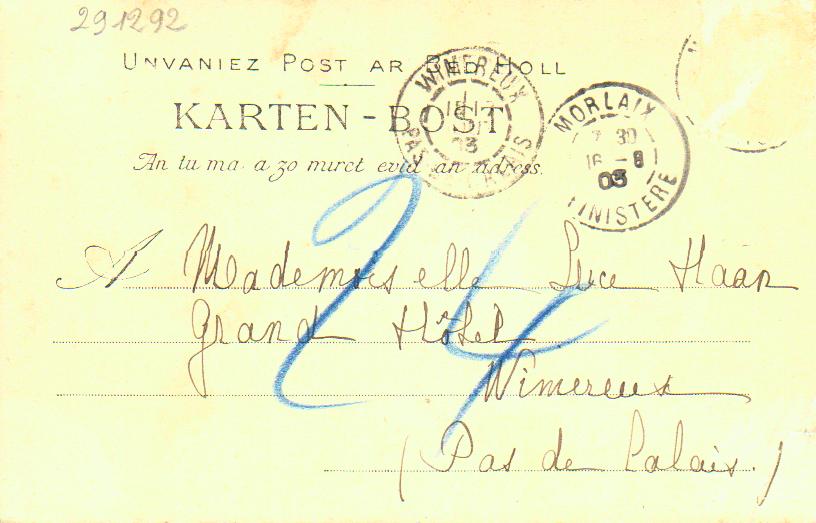 29 12 92
UNVANIEZ POST AR BED HOLL
KARTEN-BOST
An tu ma a zo miret evid an adress.
WIMEREUX
PAS-DE-CALAIS
MORLAIX
7 30
16 - 8
03
FINISTERE
A Mademoiselle Luce Haan
Grand Hôtel
Wimereux
(Pas de Calais.)
24